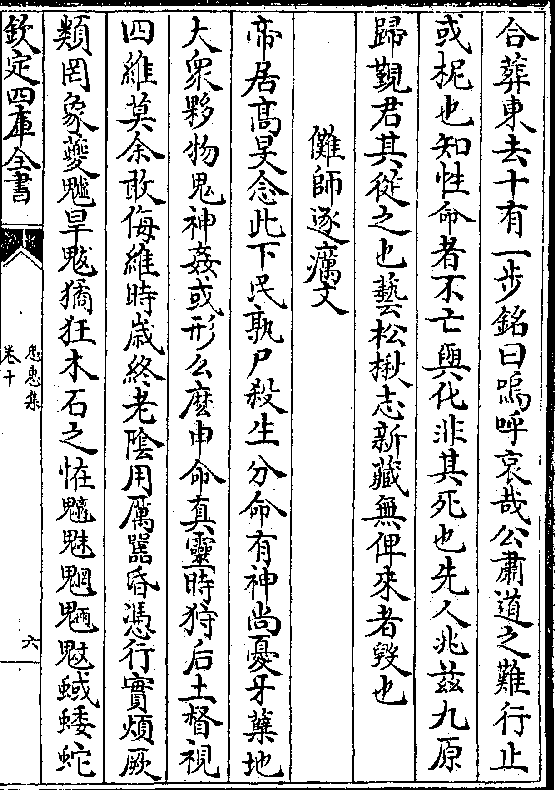 合葬東去十有一步銘曰嗚呼哀哉公肅道之難行止
或柅也知性命者不亡與化非其死也先人兆兹九原
歸覲君其從之也藝松楸志新藏無俾來者毀也
儺師逐癘文
帝居高旻念此下民孰尸殺生分命有神尚憂牙蘖地
大衆夥物鬼神姦或形么麽申命真靈時狩后土督視
四維莫余敢侮維時歳終老陰用厲嚚昏憑行實煩厥
類罔象夔魖旱魃獝狂木石之恠魑魅魍魎䰡蜮蜲蛇
欽定四庫全書
忠惠集
卷十
六